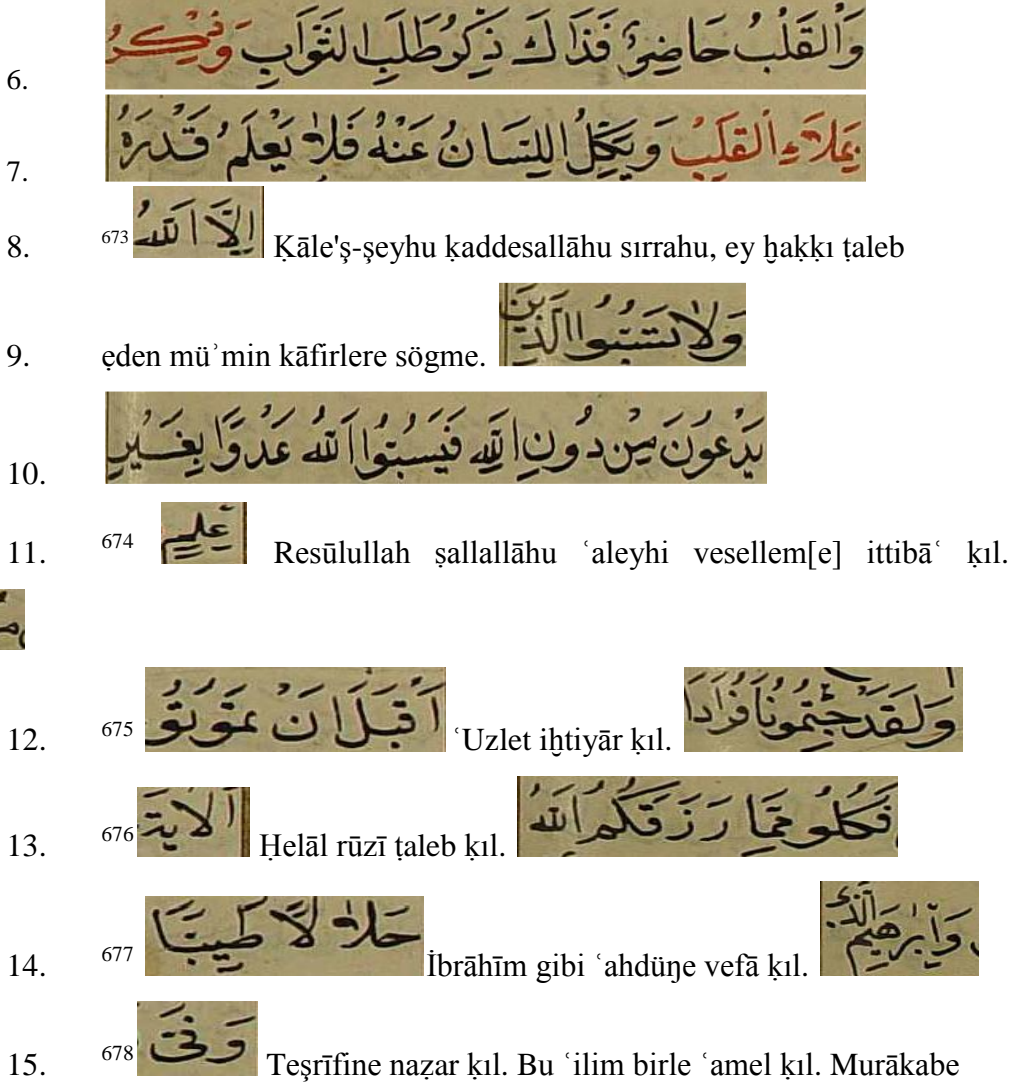 6. وَالْقَلْبُ حَاضِرٌ فَذَاكَ ذِكْرُ طَلَبِ الثَّوَابِ وَذِكْرٌ
7. يَمْلَاءِ الْقَلْبُ وَيَكِلُّ اللِّسَانُ عَنْهُ فَلَا يَعْلَمُ قَدْرَهُ
8. 673 اِلَّا اللهُ Ḳāle'ş-şeyhu ḳaddesallāhu sırrahu, ey ḫaḳḳı ṭaleb
9. ẹden müʾmin kāfirlere sögme. وَلَا تَسُبُّوا الَّذِينَ
10. يَدْعُونَ مِنْ دُونِ اللهِ فَيَسُبُّوا اللهَ عَدْوًا بِغَيْرِ
11. 674 عِلْمٍ Resūlullah ṣallallāhu ʿaleyhi vesellem[e] ittibāʿ ḳıl.
12. 675 قَبْلَ اَنْ تَمُوتُوا ʿUzlet iḫtiyār ḳıl. وَلَقَدْ جِئْتُمُونَا فُرَادَا
13. 676 اَلْايَةَ Ḥelāl rūzī ṭaleb ḳıl. فَكُلُو مِمَّا رَزَقَكُمُ اللهُ
14. 677 حَلَالًا طَيِّبًا İbrāhīm gibi ʿahdüŋe vefā ḳıl. وَاِبْرٰهِيمَ الَّذِي
15. 678 وَفَّى Teşrīfine naẓar ḳıl. Bu ʿilim birle ʿamel ḳıl. Murākabe